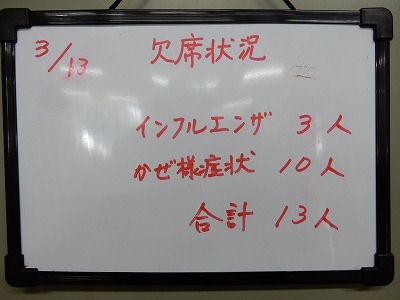 3/13 欠席状況
インフルエンザ 3人
かぜ様症状 10人
合計 13人